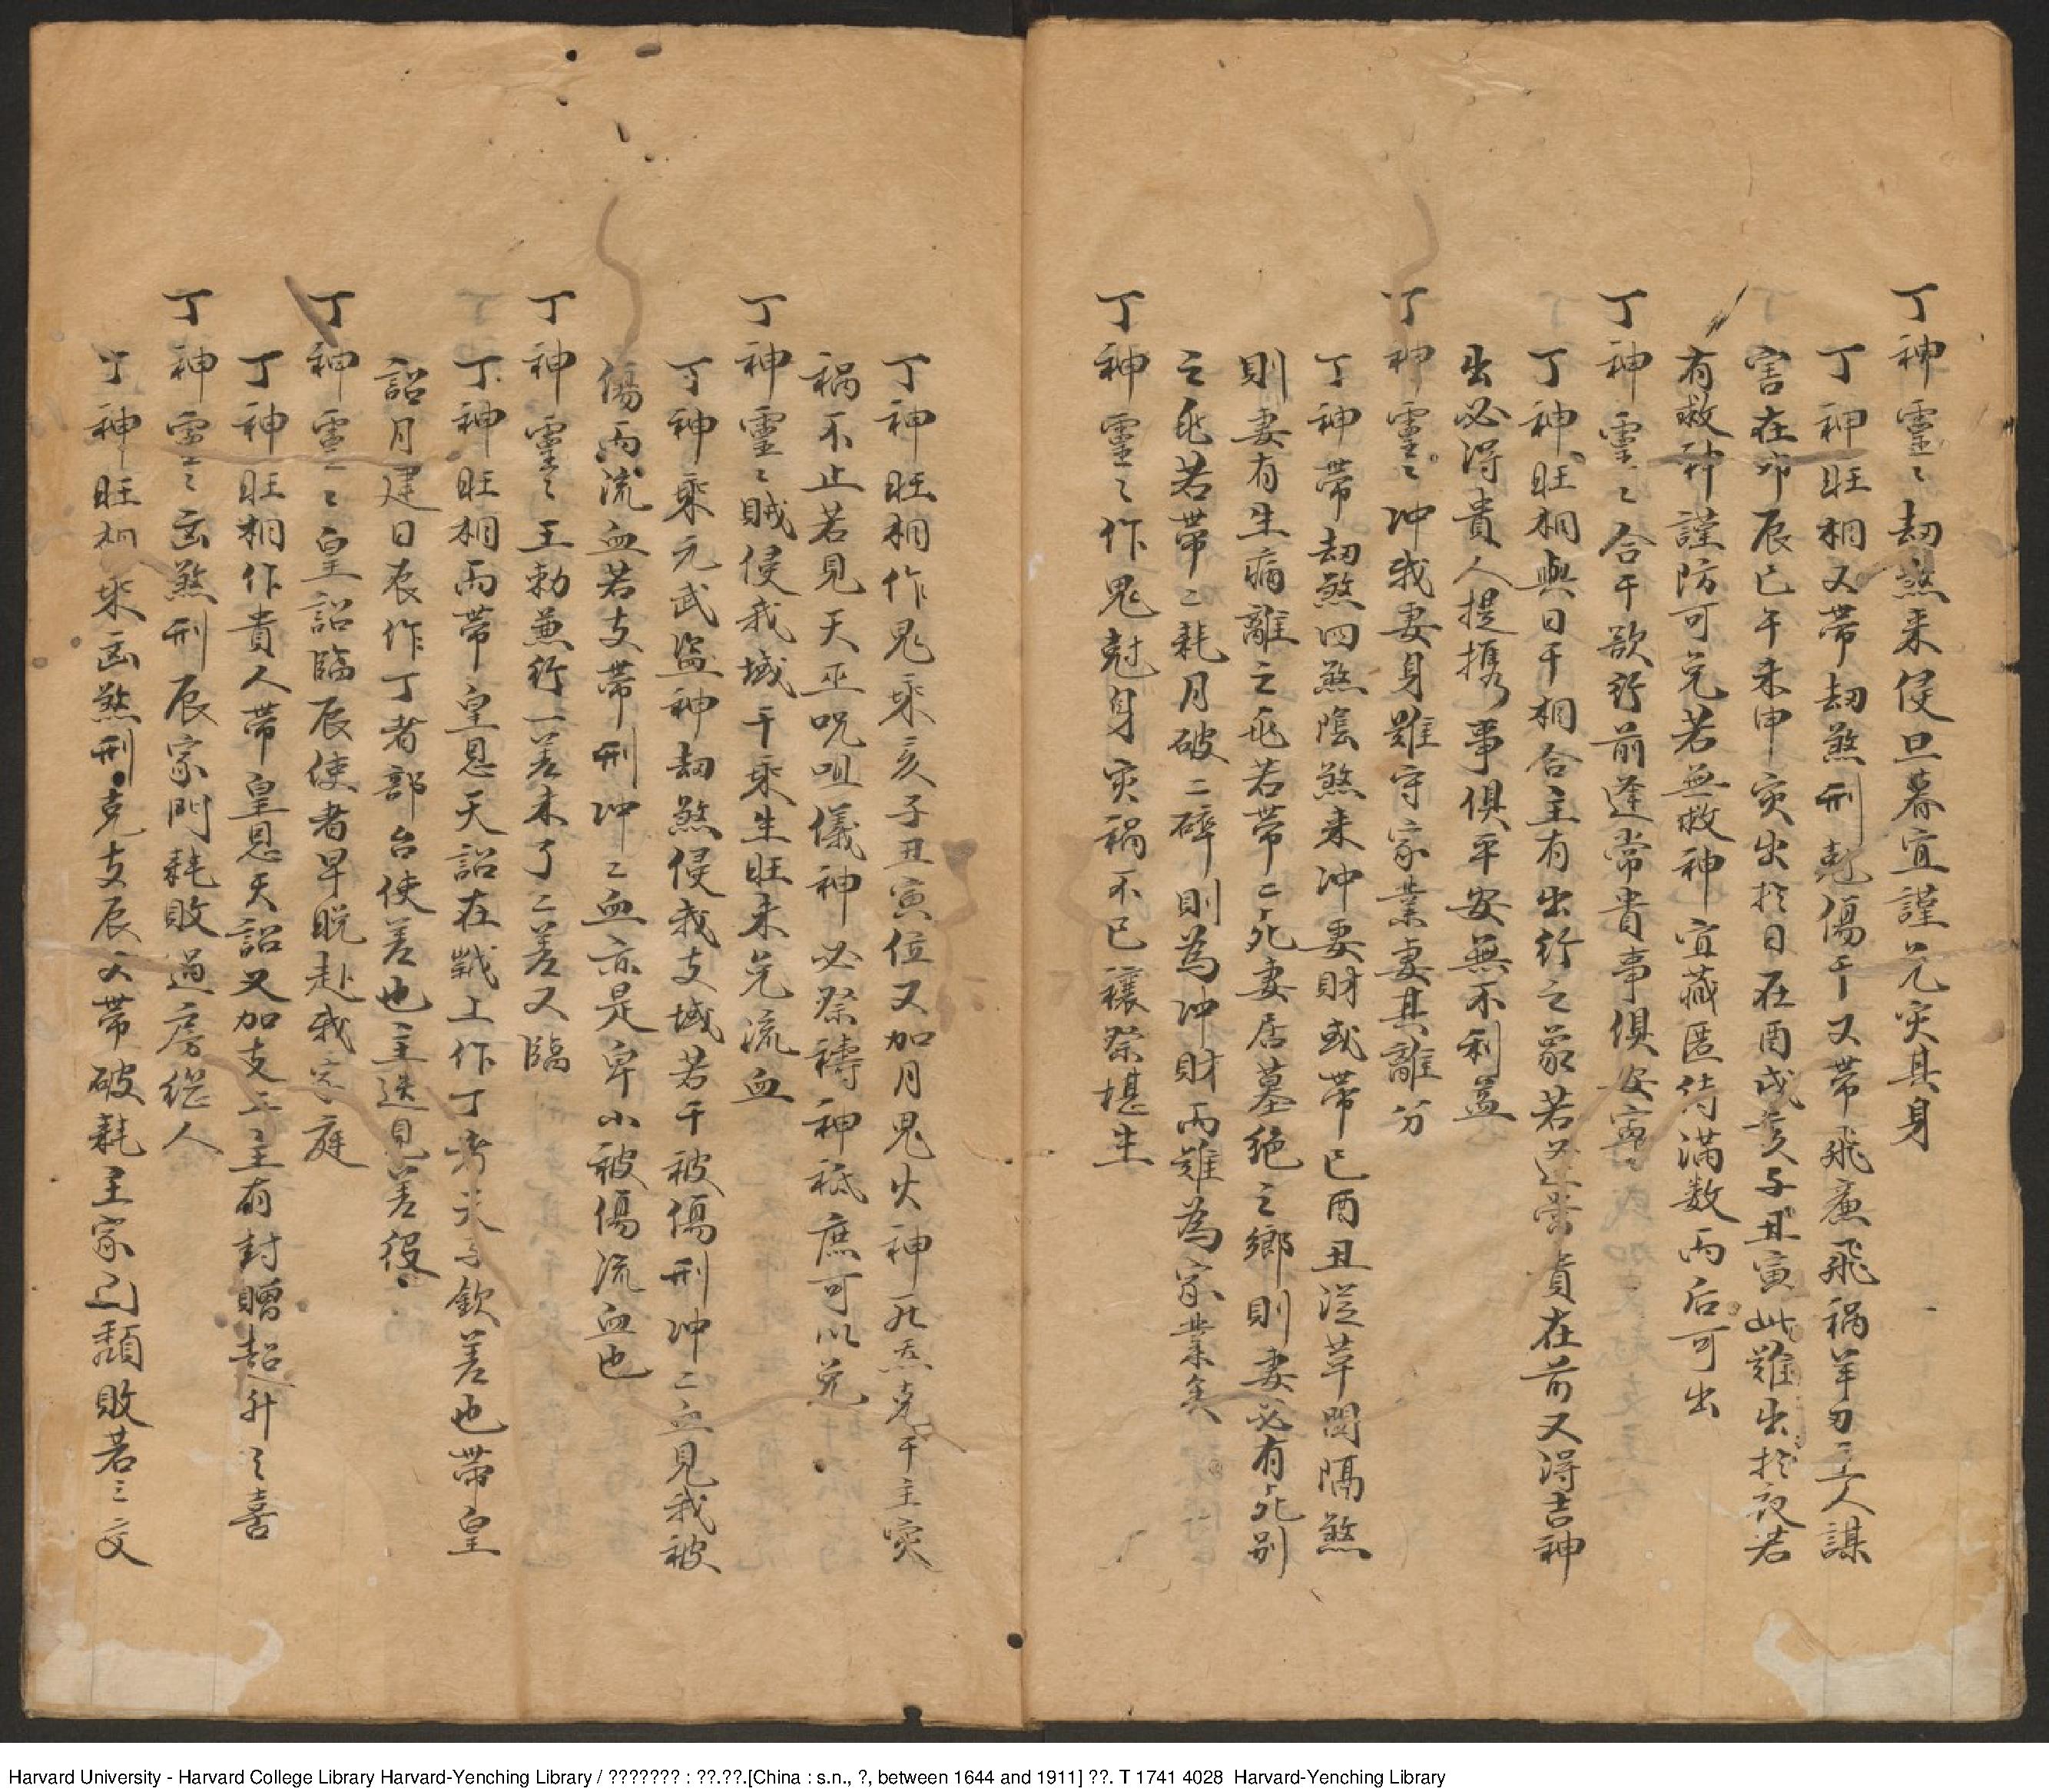 丁神靈〻劫煞来侵旦暮宜謹兄灾其身
丁神旺相又带劫煞刑尅傷干又带飛廉飛祸羊刃主人謀
害在卯辰巳午未申灾出扵日在酉戌亥子丑寅此難出扵夜若
有救神謹防可免若無救神宜藏匿待满数而后可出
丁神靈〻合干欲行前逢常貴事俱安寧
丁神旺相與日干相合主有出行之象若逆常貴在前又得吉神
出必得貴人提携事俱平安無不利益
丁神靈〻冲我妻身難守家業妻其離分
丁神带劫煞四煞陰煞来冲妻財或带巳酉丑從革間隔煞
則妻有生病離之兆若带二死妻居墓绝之鄉則妻必有死别
之兆若带二耗月破二碎則為冲財而難為家業矣
丁神靈〻作鬼尅身灾祸不已禳祭堪生
丁神旺相作鬼乘亥子丑寅位又加月鬼火神死炁克干主灾
祸不止若見天巫咒咀儀神必祭禱神祗庶可以免
丁神靈〻賊侵我域干乘生旺未免流血
丁神乘元武盜神劫煞侵我支域若干被傷刑冲二血見我被
傷而流血若支带刑冲二血亦是卑小被傷流血也
丁神靈〻王勅兼行一差未了二差又臨
丁神旺相而带皇恩天詔在歲上作丁者天子欽差也带皇
詔月建日辰作丁者部台使差也主迭見差役
丁神靈〻皇詔臨辰使者早晚赴我家庭
丁神旺相作貴人带皇恩天詔又加支上主有封贈超升之喜
丁神靈〻凶煞刑辰家門耗敗過房继人
丁神旺相乘凶煞刑克支辰又带破耗主家門頹敗若三交